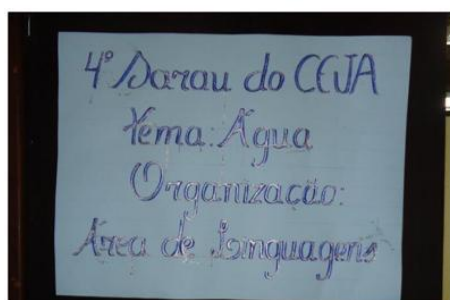 4º Sarau do CEJA
Tema: Água
Organização:
Área de Linguagens